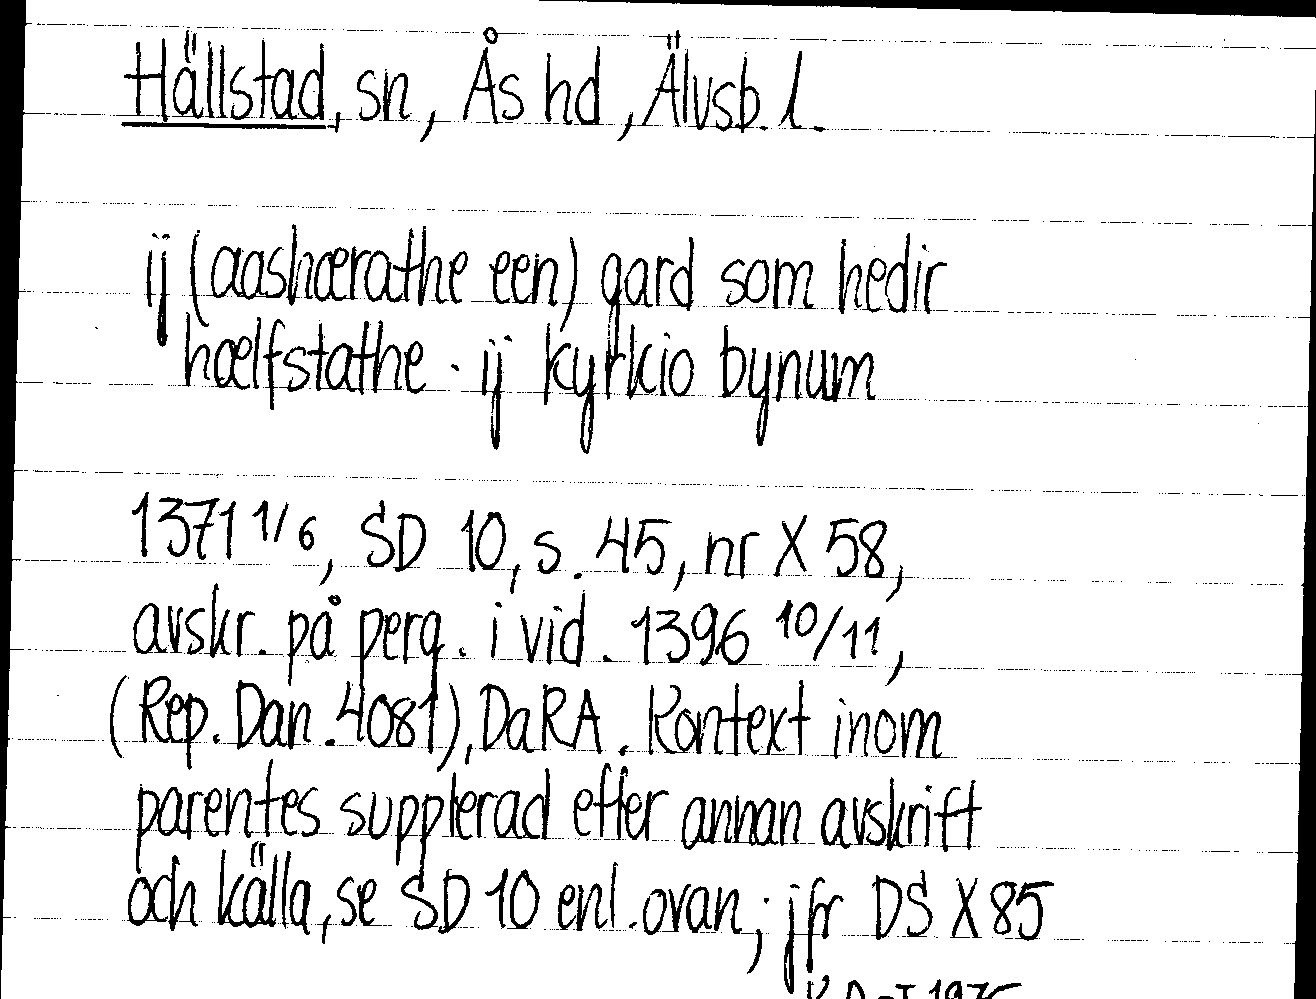 Hällstad, sn, Ås hd, Älvsb. l.
ij (aashærathe een) gard som hedir
hælfstathe . ij kyrkio bynum
1371 1/6, SD 10, s. 45, nr X 58,
avskr. på perg. i vid. 1396 10/11,
(Rep. Dan. 4081), DaRA. Kontext inom
parentes supplerad efter annan avskrift
och källa, se SD 10 enl. ovan; jfr DS X 85